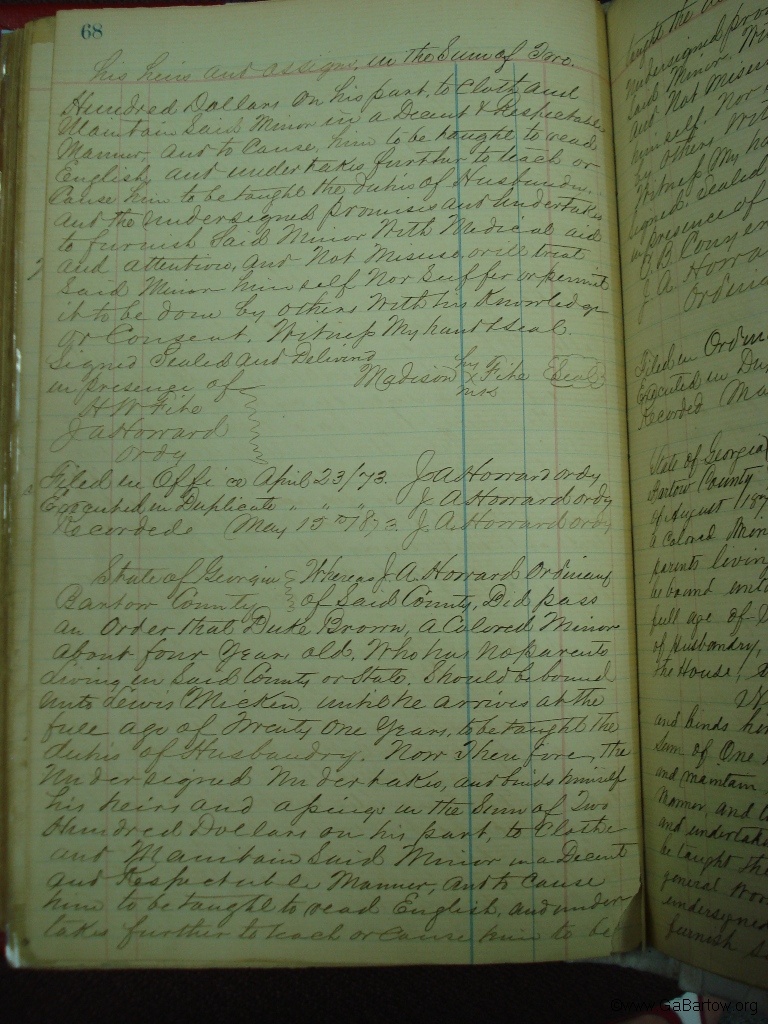 68
his heirs and assigns, in the Sum of Two
Hundred Dollars on his part, to Cloth and
Maintain Said Minor in a Decent & Respectable
Manner, and to Cause, him to be taught to read
English, and undertakes further to teach or
Cause him to be taught the duties of Husbandry.
and the undersigned promises and undertakes
to furnish Said Minor With Medical aid
and attention, and Not Misuse, or ill treat
Said Minor himself Nor Suffer or permit
it to be done by others With his Knowledge
or Consent. Witness My hand & Seal.
Signed Sealed and Delivered
in presence of
Madison his x mark Fite (Seal)
H W Fite
J A Howard
Ordy
Filed in Office April 23/73. J A Howard ordy
Executed in Duplicate " " " J A Howard ordy
Recorded May 15th 1873. J. A. Howard ordy
State of Georgia Whereas J. A. Howard Ordinary
Bartow County of Said County, Did pass
an Order that Duke Brown, a Colored Minor
about four Years old, Who has No parents
living in Said County or State. Should be bound
unto Lewis Micken, until he arrives at the
full age of Twenty One Years, to be taught the
duties of Husbandry. Now Therefore, the
Undersigned Undertakes, and binds himself
his heirs and assigns in the Sum of Two
Hundred Dollars on his part, to Clothe
and Maintain Said Minor in a Decent
and Respectable Manner, and to cause
him to be taught to read English, and under
takes further to teach or cause him to be
taught the
undersigned
Said Minor. Wi
and Not Misus
himself. Nor
by others Wit
Witness My ha
Signed. Sealed
in presence of
J. A. Howa
Ordina
Filed in Ordin
Executed in Du
Recorded Ma
State of Georgia
Bartow County
of August 187
a Colored Mino
parents livin
be bound unto
full age of
of Husbandry,
the House,
and binds hi
Sum of One
and maintain
Manner, and
and undertak
be taught the
general
undersigned
furnish S
©www.GaBartow.org